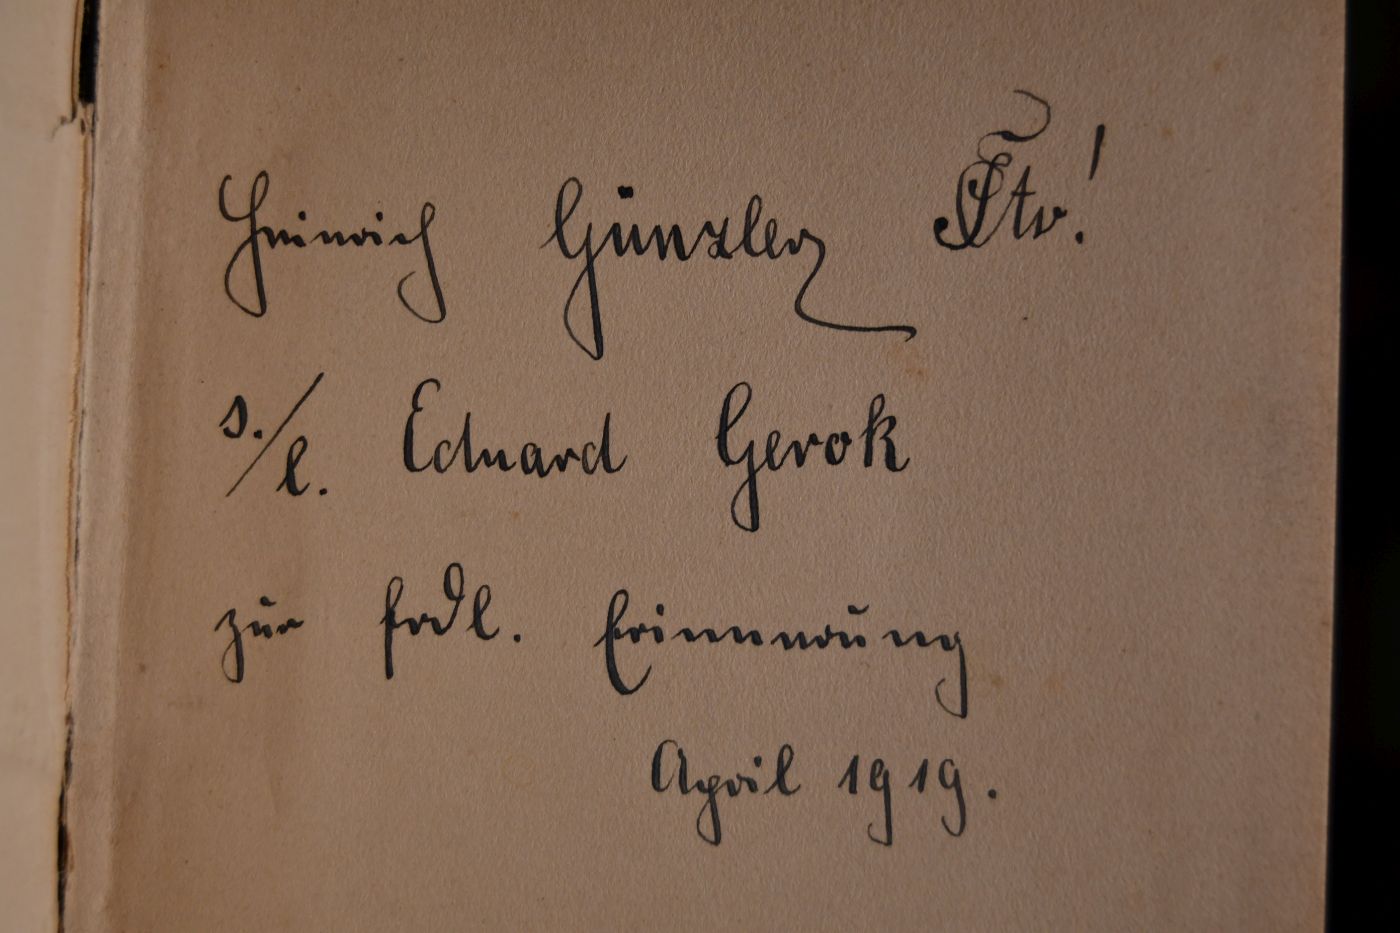 Heinrich Günzler Ftv!
s./l. Eduard Gerok
zur frdl. Erinnerung
April 1919.